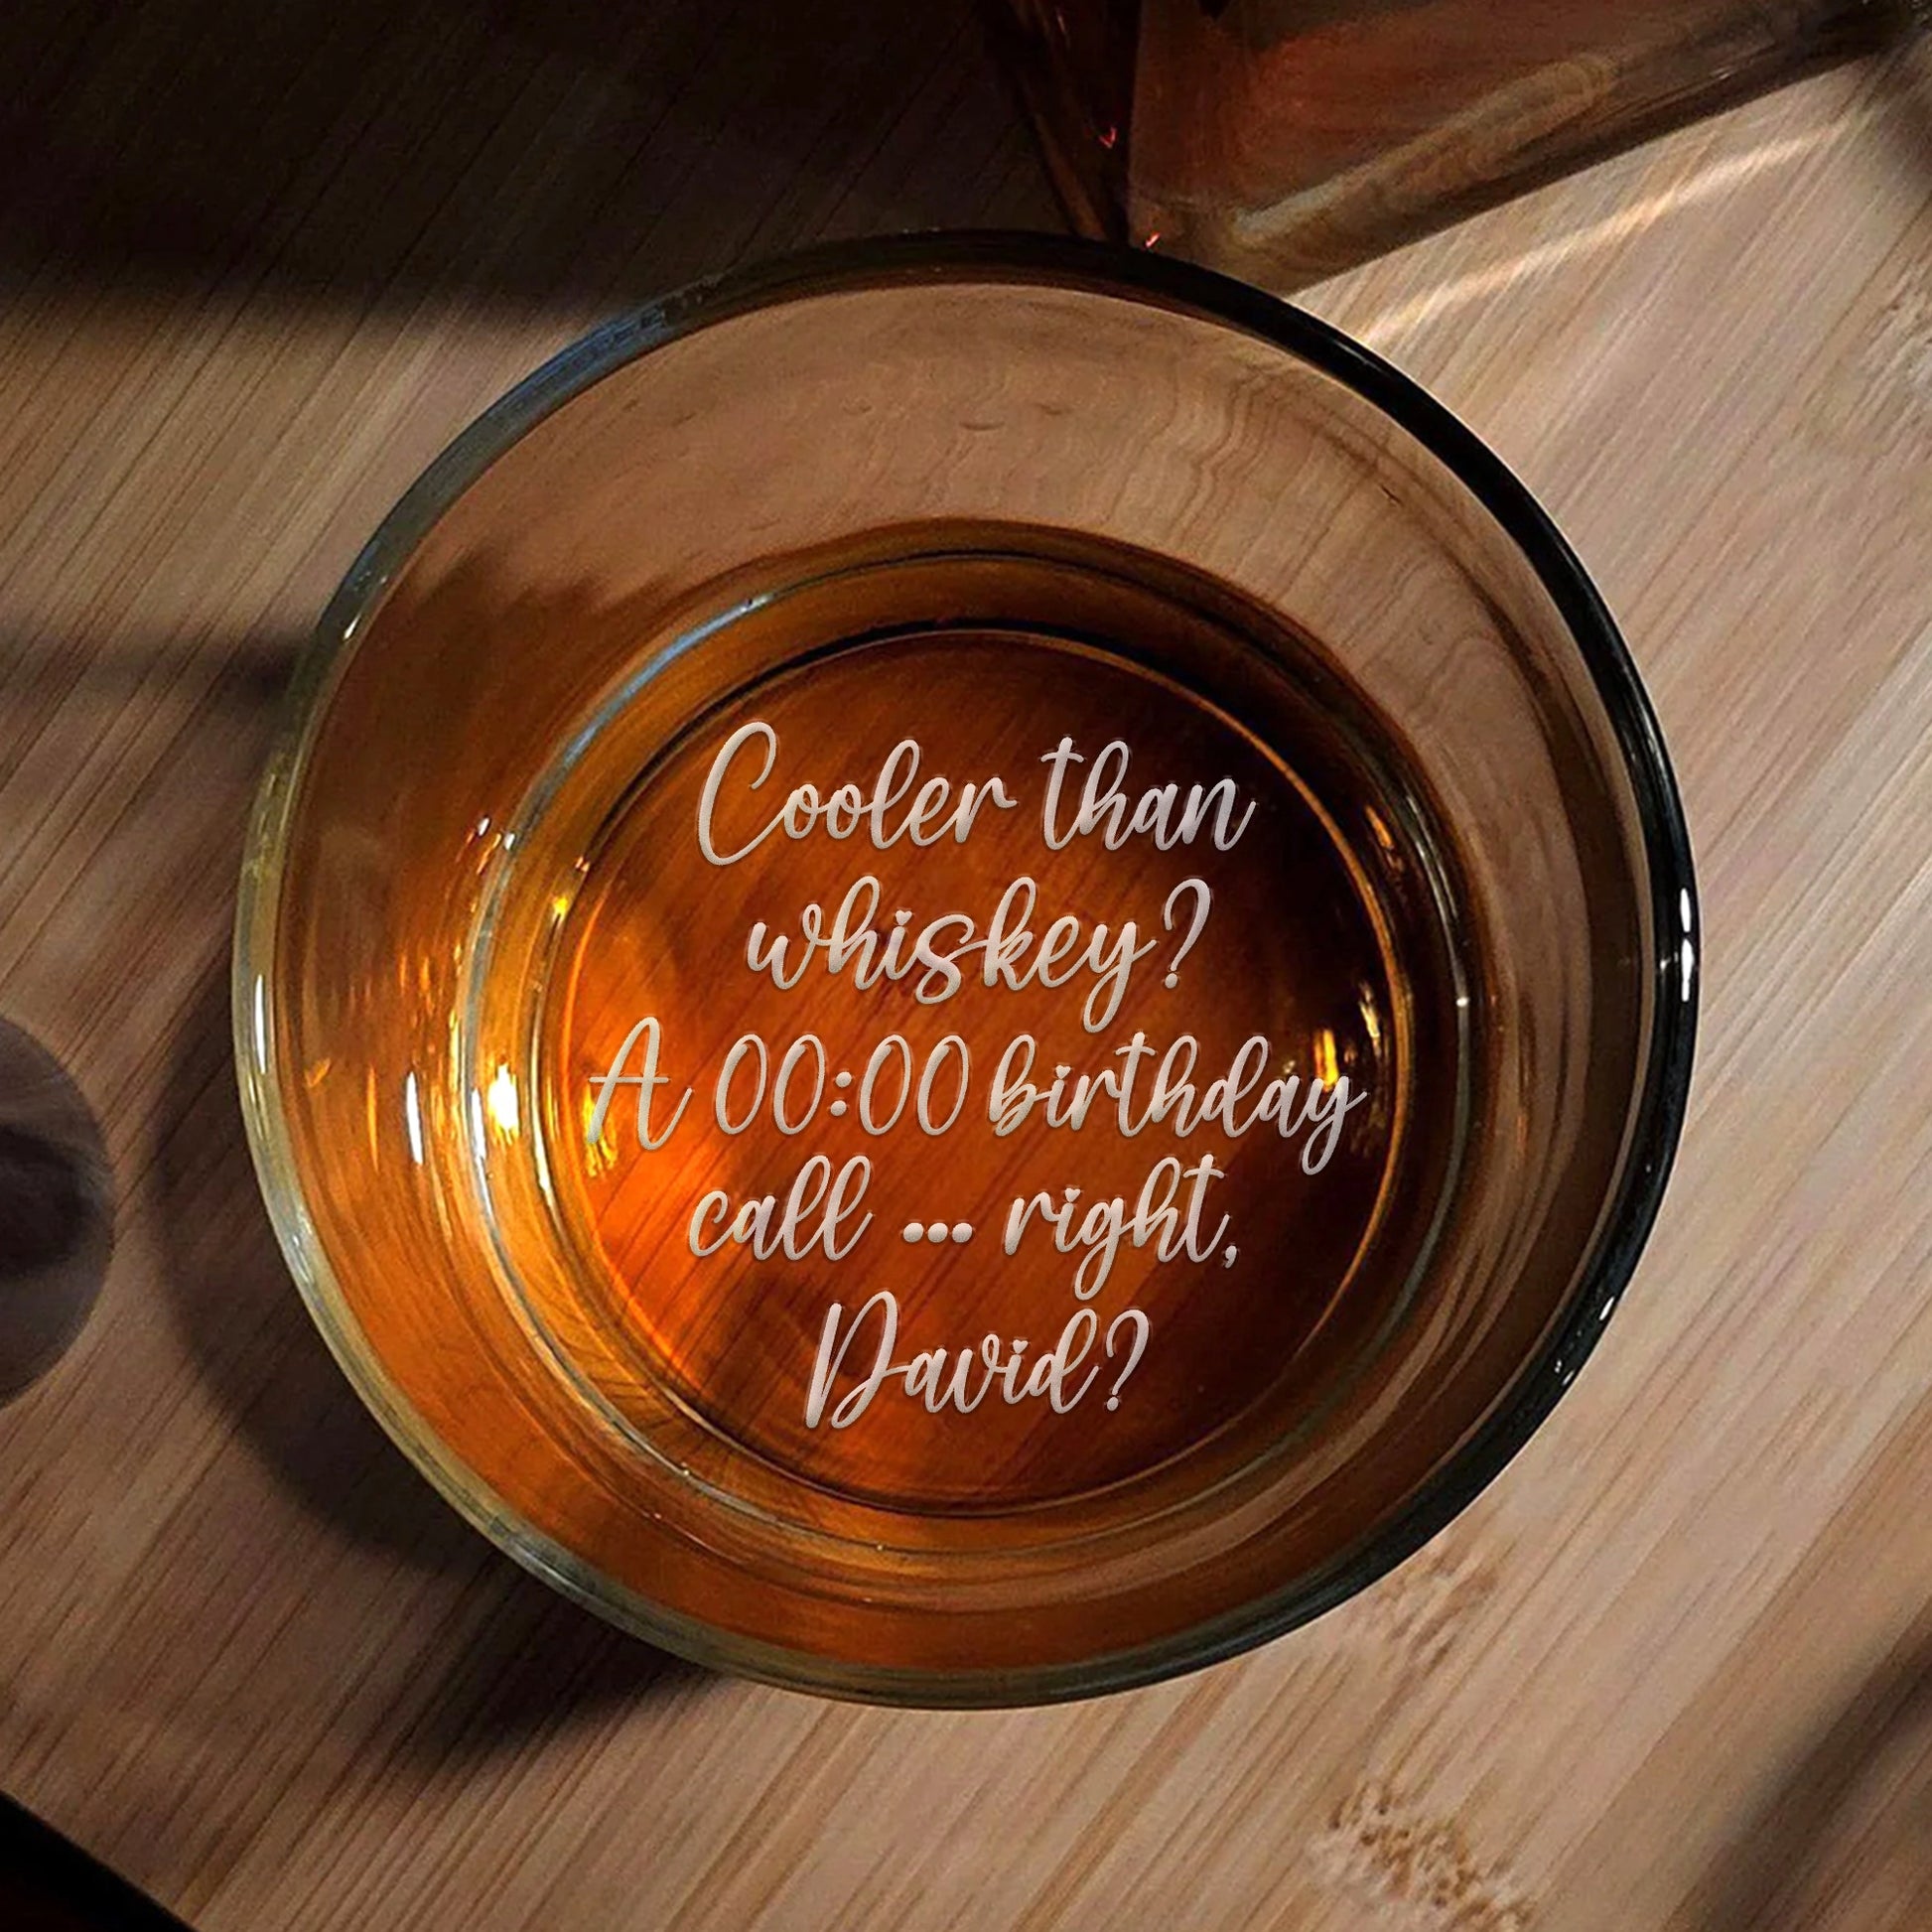 Cooler than
whiskey?
A 00:00 birthday
call ... right,
David?